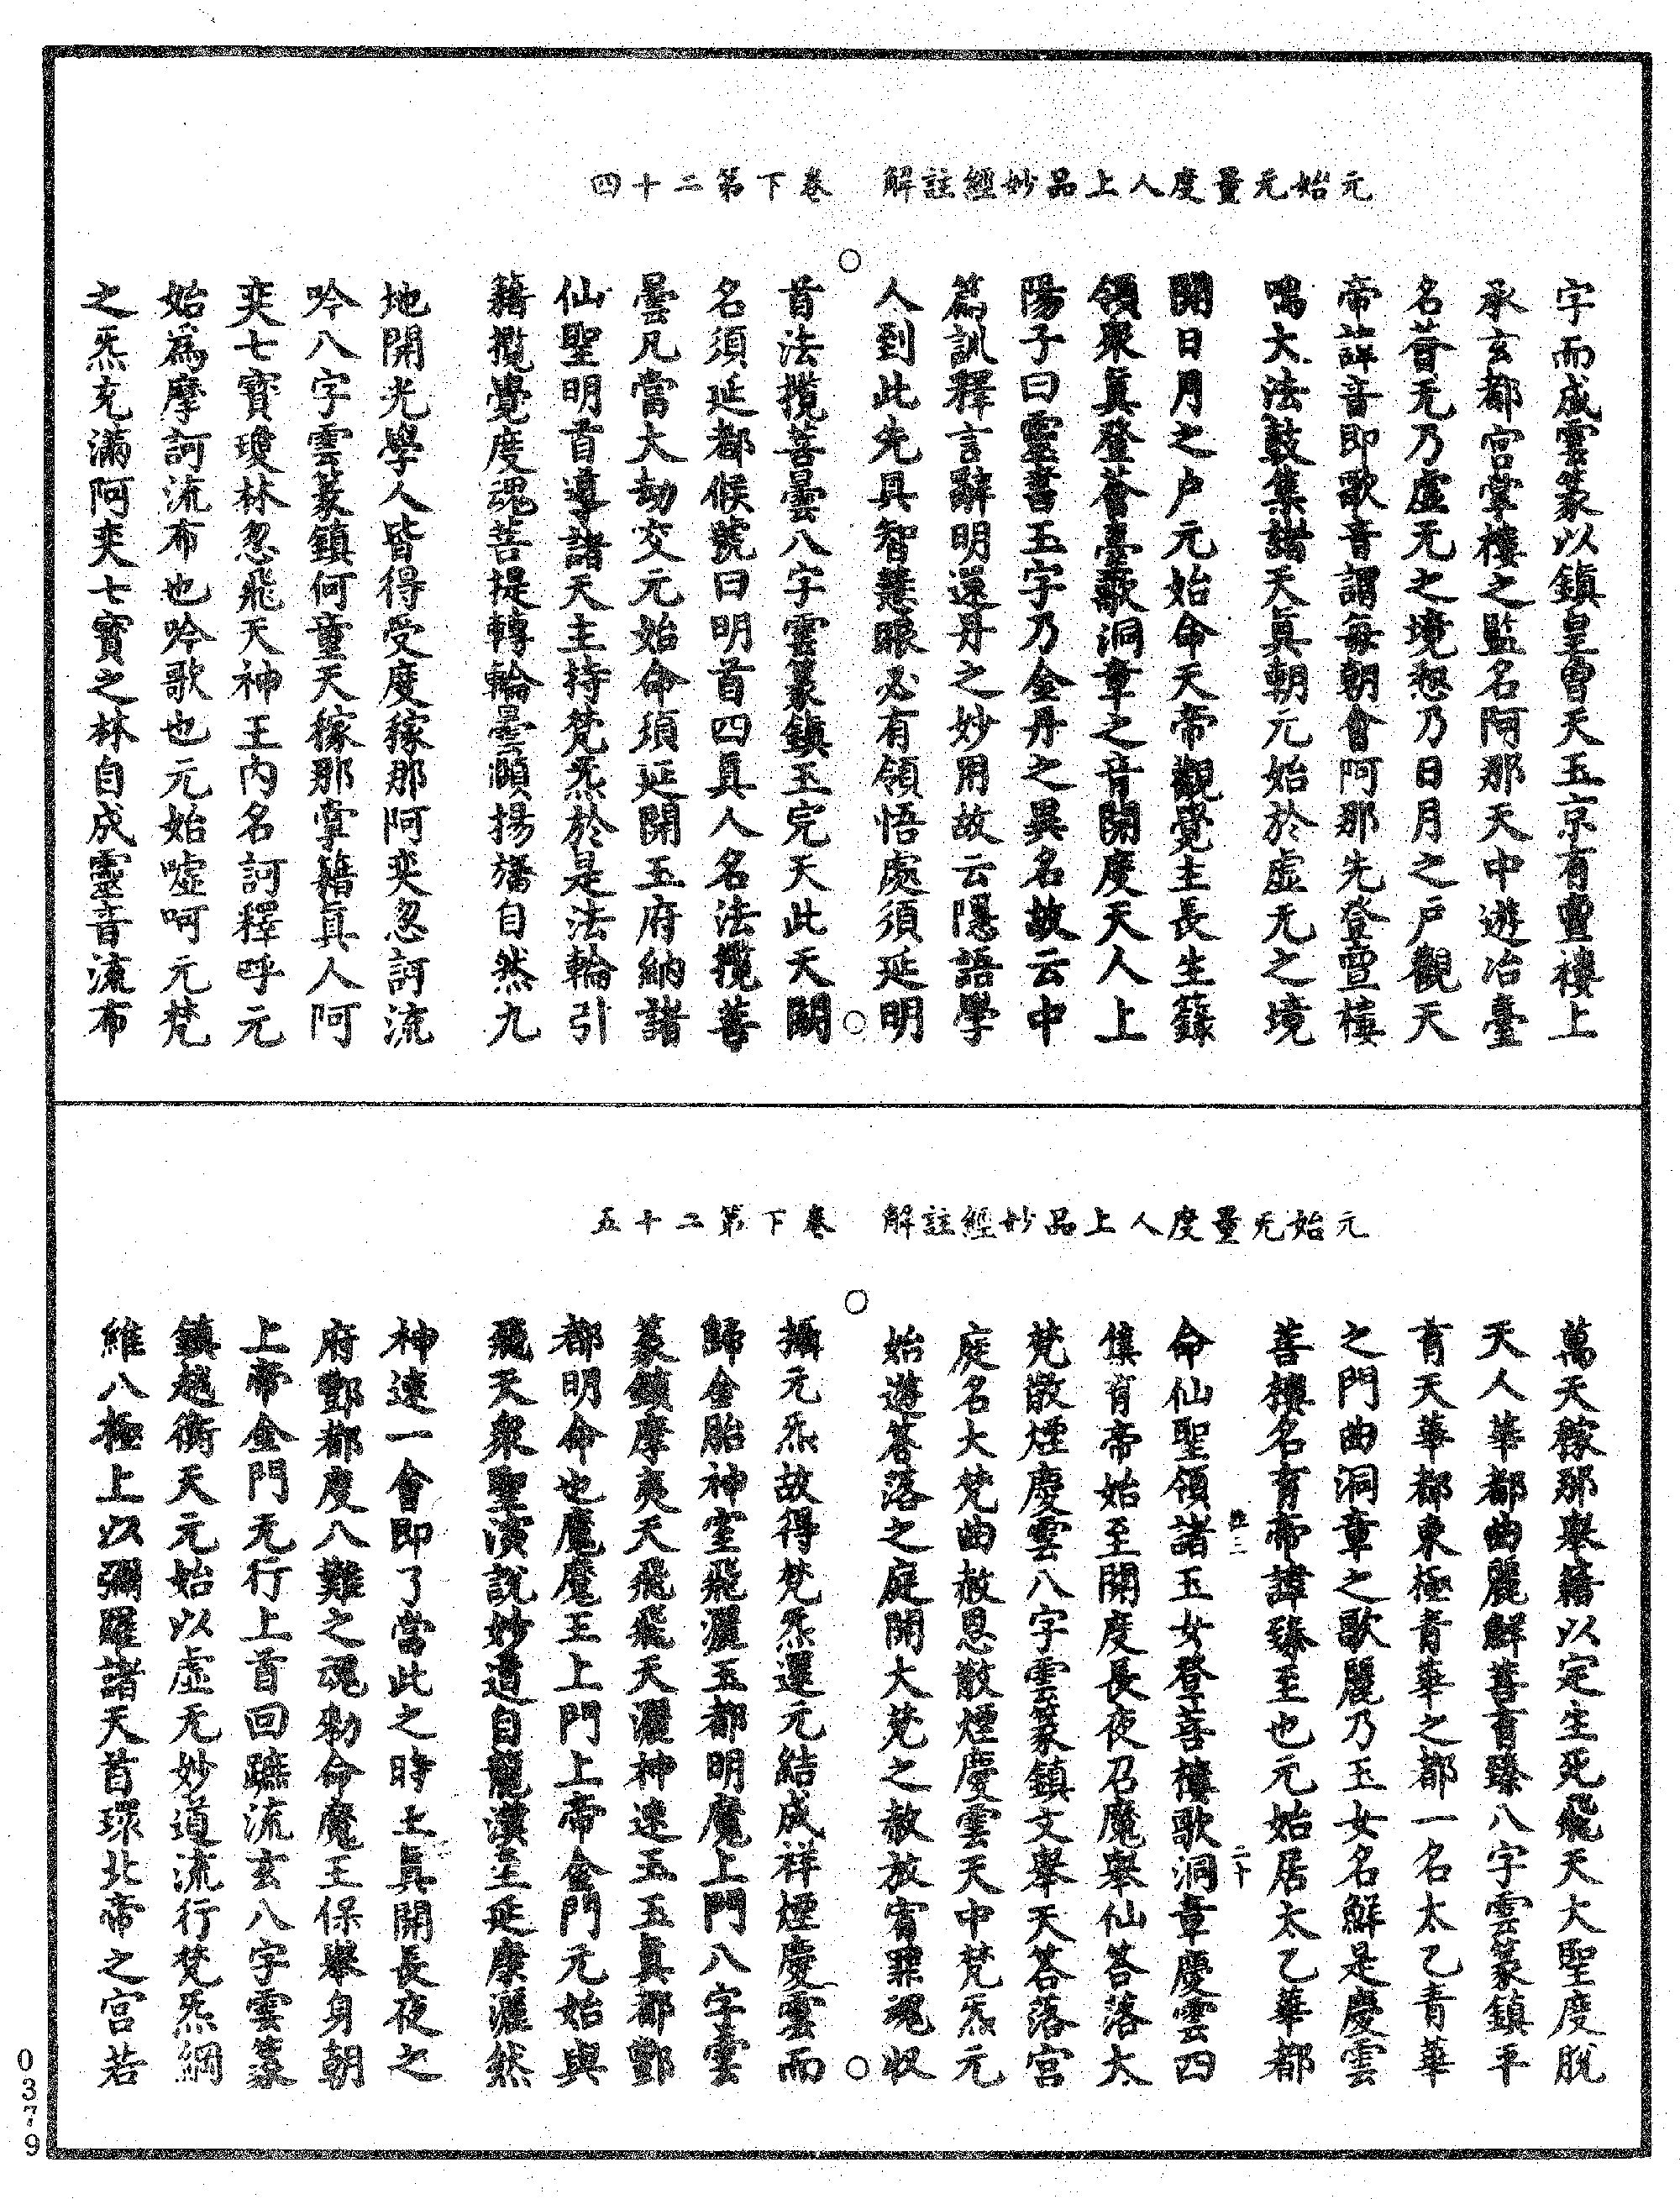 元始无量度人上品妙經註解　卷下第二十四
字而成雲篆以鎮皇曾天玉京有亶樓上
承玄都宮掌樓之監名阿那天中遊冶臺
名薈无乃虛无之境惒乃日月之戶觀天
帝諱音即歌音謂每朝會阿那先登亶樓
唱大法鼓集諸天真朝元始於虛无之境
開日月之戶元始命天帝觀覺主長生籙
領眾真登薈臺歌洞章之音開度天人上
陽子曰靈書玉字乃金丹之異名故云中
篇訓釋言辭明還丹之妙用故云隱語學
人到此先具智慧眼必有領悟處須延明
首法攬菩曇八字雲篆鎮玉完天此天闕
名須延都候號曰明首四真人名法攬菩
曇凡當大劫交元始命須延開玉府納諸
仙聖明首導諸天主持梵炁於是法輪引
藉攬覺度魂菩提轉輪曇頤揚旛自然九
地開光學人皆得受度稼那阿奕忽訶流
吟八字雲篆鎮何童天稼那掌籍真人阿
奕七寶瓊林忽飛天神王內名訶釋呼元
始爲摩訶流布也吟歌也元始噓呵元梵
之炁充滿阿奕七寶之林自成靈音流布
元始无量度人上品妙經註解　卷下第二十五
萬天稼那舉籍以定生死飛天大聖度脫
天人華都曲麗鮮菩育臻八字雲篆鎮平
育天華都東極青華之都一名太乙青華
之門曲洞章之歌麗乃玉女名鮮是慶雲
菩樓名育帝諱臻至也元始居太乙華都
命仙聖領諸玉女登菩樓歌洞章慶雲四
集育帝始至開度長夜召魔舉仙荅落太
梵散煙慶雲八字雲篆鎮文舉天荅落宮
庭名大梵曲赦恩散煙慶雲天中梵炁元
始遊荅落之庭開大梵之赦放宥罪魂收
攝元炁故得梵炁還元結成祥煙慶雲而
歸金胎神室飛灑玉都明魔上門八字雲
篆鎮摩夷天飛飛天灑神速玉玉真都酆
都明命也魔魔王上門上帝金門元始與
飛天眾聖演說妙道自龍漢至延康灑然
神速一會即了當此之時上真開長夜之
府酆都度八難之魂勑命魔王保舉身朝
上帝金門无行上首回蹠流玄八字雲篆
鎮越衡天元始以虛无妙道流行梵炁綱
維八極上以彌羅諸天首環北帝之宮若
二十
0379